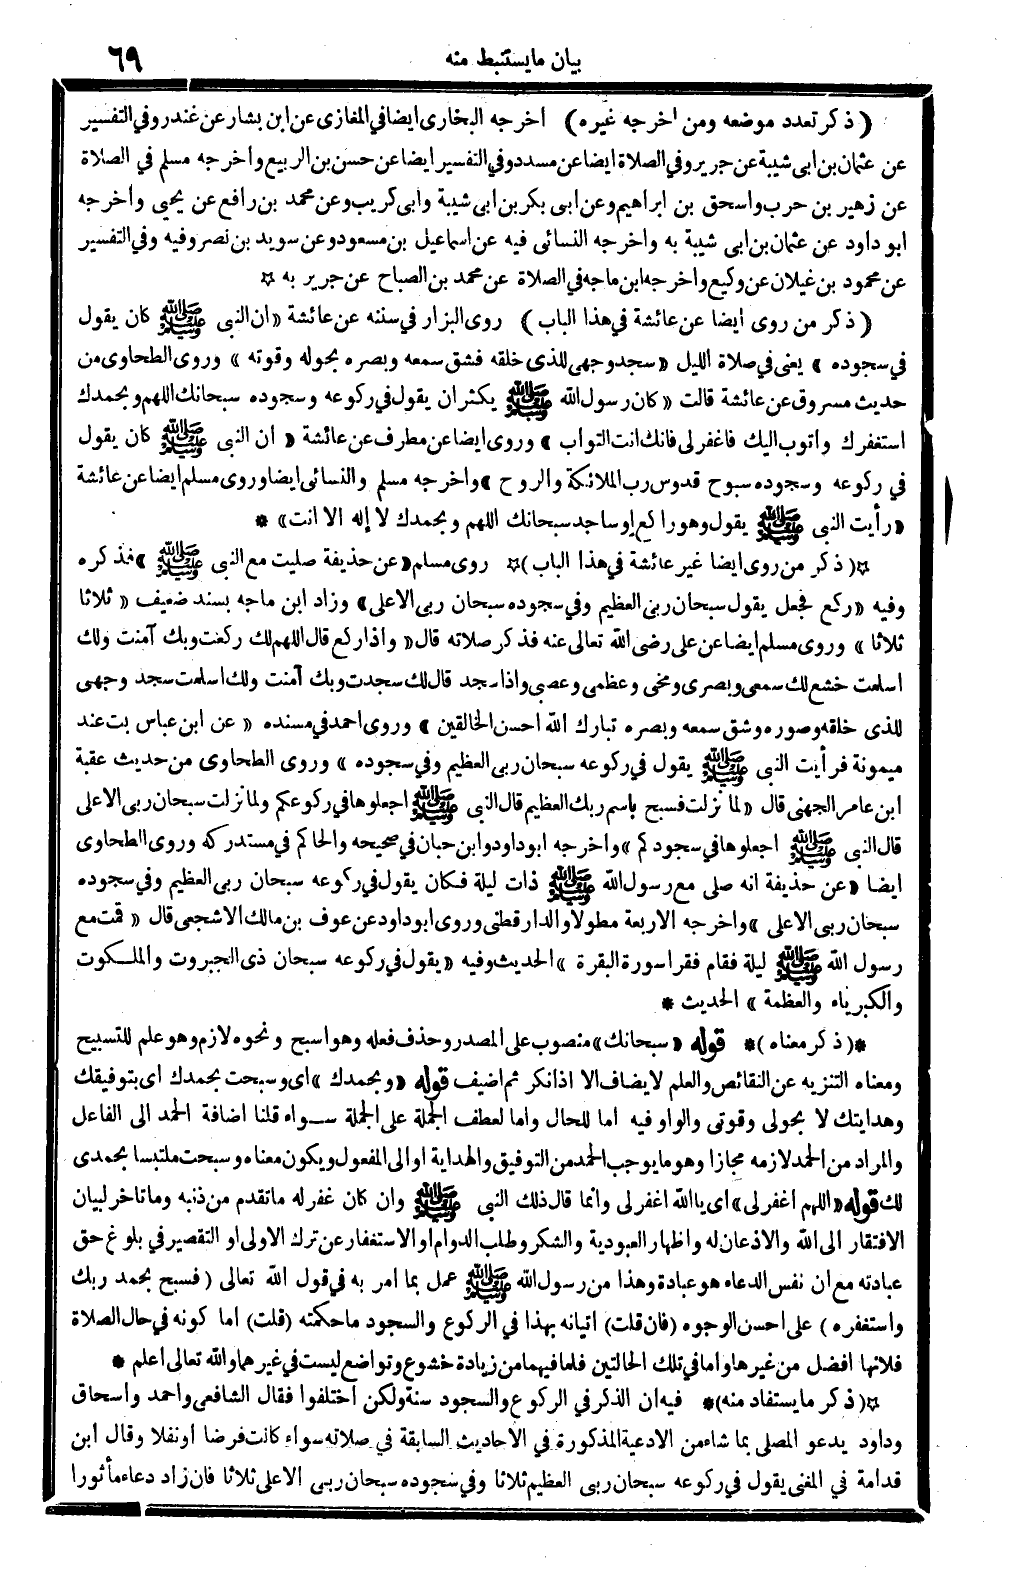 بيان مايستنبط منه ٦٩
( ذكر تعدد موضعه ومن اخرجه غيره ) اخرجه البخارى ايضا في المغازى عن ابن بشار عن غندر وفي التفسير
عن عثمان بن ابى شيبة عن جرير وفي الصلاة ايضا عن مسدد وفي التفسير ايضا عن حسن بن الربيع واخرجه مسلم في الصلاة
عن زهير بن حرب واسحق بن ابراهيم وعن ابى بكر بن ابى شيبة وابى كريب وعن محمد بن رافع عن يحيى واخرجه
ابو داود عن عثمان بن ابى شيبة به واخرجه النسائى فيه عن اسماعيل بن مسعود وعن سويد بن نصر وفيه وفي التفسير
عن محمود بن غيلان عن وكيع واخرجه ابن ماجه في الصلاة عن محمد بن الصباح عن جرير به ☆
( ذكر من روى ايضا عن عائشة في هذا الباب ) روى البزار في سننه عن عائشة « ان النبى ﷺ كان يقول
في سجوده » يعنى في صلاة الليل « سجد وجهى للذى خلقه فشق سمعه وبصره بحوله وقوته » وروى الطحاوى من
حديث مسروق عن عائشة قالت « كان رسول الله ﷺ يكثر ان يقول في ركوعه وسجوده سبحانك اللهم وبحمدك
استغفرك واتوب اليك فاغفر لى فانك انت التواب » وروى ايضا عن مطرف عن عائشة « ان النبى ﷺ كان يقول
في ركوعه وسجوده سبوح قدوس رب الملائكة والروح » واخرجه مسلم والنسائى ايضا وروى مسلم ايضا عن عائشة
« رأيت النبى ﷺ يقول وهو راكع او ساجد سبحانك اللهم وبحمدك لا إله الا انت » *
☆( ذكر من روى ايضا غير عائشة في هذا الباب )☆ روى مسلم « عن حذيفة صليت مع النبى ﷺ » فذكره
وفيه « ركع فجعل يقول سبحان ربى العظيم وفي سجوده سبحان ربى الاعلى » وزاد ابن ماجه بسند ضعيف « ثلاثا
ثلاثا » وروى مسلم ايضا عن على رضى الله تعالى عنه فذكر صلاته قال « واذا ركع قال اللهم لك ركعت وبك آمنت ولك
اسلمت خشع لك سمعى وبصرى ومخى وعظمى وعصبى واذا سجد قال لك سجدت وبك آمنت ولك اسلمت سجد وجهى
للذى خلقه وصوره وشق سمعه وبصره تبارك الله احسن الخالقين » وروى احمد في مسنده « عن ابن عباس بت عند
ميمونة فرأيت النبى ﷺ يقول في ركوعه سبحان ربى العظيم وفي سجوده » وروى الطحاوى من حديث عقبة
ابن عامر الجهنى قال « لما نزلت فسبح باسم ربك العظيم قال النبى ﷺ اجعلوها في ركوعكم ولما نزلت سبحان ربى الاعلى
قال النبى ﷺ اجعلوها في سجودكم » واخرجه ابو داود وابن حبان في صحيحه والحاكم في مستدركه وروى الطحاوى
ايضا « عن حذيفة انه صلى مع رسول الله ﷺ ذات ليلة فكان يقول في ركوعه سبحان ربى العظيم وفي سجوده
سبحان ربى الاعلى » واخرجه الاربعة مطولا والدارقطنى وروى ابو داود عن عوف بن مالك الاشجعى قال « قمت مع
رسول الله ﷺ ليلة فقام فقرا سورة البقرة » الحديث وفيه « يقول في ركوعه سبحان ذى الجبروت والملكوت
والكبرياء والعظمة » الحديث *
*( ذكر معناه )* قوله « سبحانك » منصوب على المصدر وحذف فعله وهو اسبح ونحوه لازم وهو علم للتسبيح
ومعناه التنزيه عن النقائص والعلم لا يضاف الا اذا نكر ثم اضيف قوله « وبحمدك » اى وسبحت بحمدك اى بتوفيقك
وهدايتك لا بحولى وقوتى والواو فيه اما للحال واما لعطف الجملة على الجملة سواء قلنا اضافة الحمد الى الفاعل
والمراد من الحمد لازمه مجازا وهو ما يوجب الحمد من التوفيق والهداية او الى المفعول ويكون معناه وسبحت ملتبسا بحمدى
لك قوله « اللهم اغفر لى » اى يا الله اغفر لى وانما قال ذلك النبى ﷺ وان كان غفر له ما تقدم من ذنبه وما تاخر لبيان
الافتقار الى الله والاذعان له واظهار العبودية والشكر وطلب الدوام او الاستغفار عن ترك الاولى او التقصير في بلوغ حق
عبادته مع ان نفس الدعاء هو عبادة وهذا من رسول الله ﷺ عمل بما امر به في قول الله تعالى ( فسبح بحمد ربك
واستغفره ) على احسن الوجوه (فان قلت) اتيانه بهذا في الركوع والسجود ما حكمته (قلت) اما كونه في حال الصلاة
فلانها افضل من غيرها واما في تلك الحالتين فلما فيهما من زيادة خشوع وتواضع ليست في غيرهما والله تعالى اعلم *
☆( ذكر ما يستفاد منه)* فيه ان الذكر في الركوع والسجود سنة ولكن اختلفوا فقال الشافعى واحمد واسحاق
وداود يدعو المصلى بما شاء من الادعية المذكورة في الاحاديث السابقة في صلاته سواء كانت فرضا او نفلا وقال ابن
قدامة في المغنى يقول في ركوعه سبحان ربى العظيم ثلاثا وفي سجوده سبحان ربى الاعلى ثلاثا فان زاد دعاء مأثورا